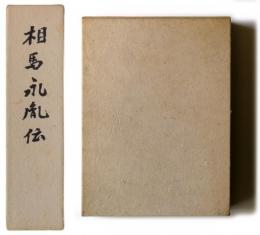 相馬永胤伝